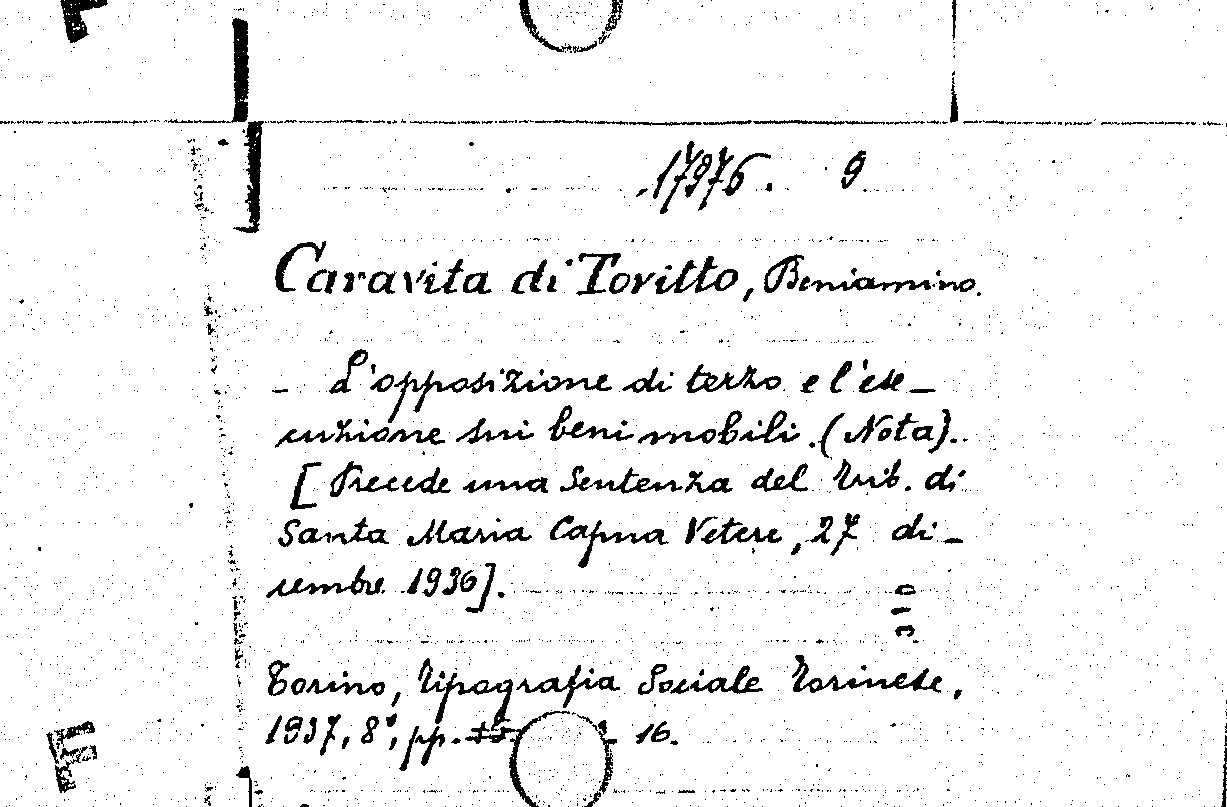 F
17976. 9
Caravita di Toritto, Beniamino.
- L'opposizione di terzo e l'ese-
cuzione sui beni mobili. (Nota).
[Precede una Sentenza del Trib. di
Santa Maria Capua Vetere, 27 di-
cembre 1936].
310
Torino, Tipografia Sociale Torinese,
1937, 8°, pp. 16.
F